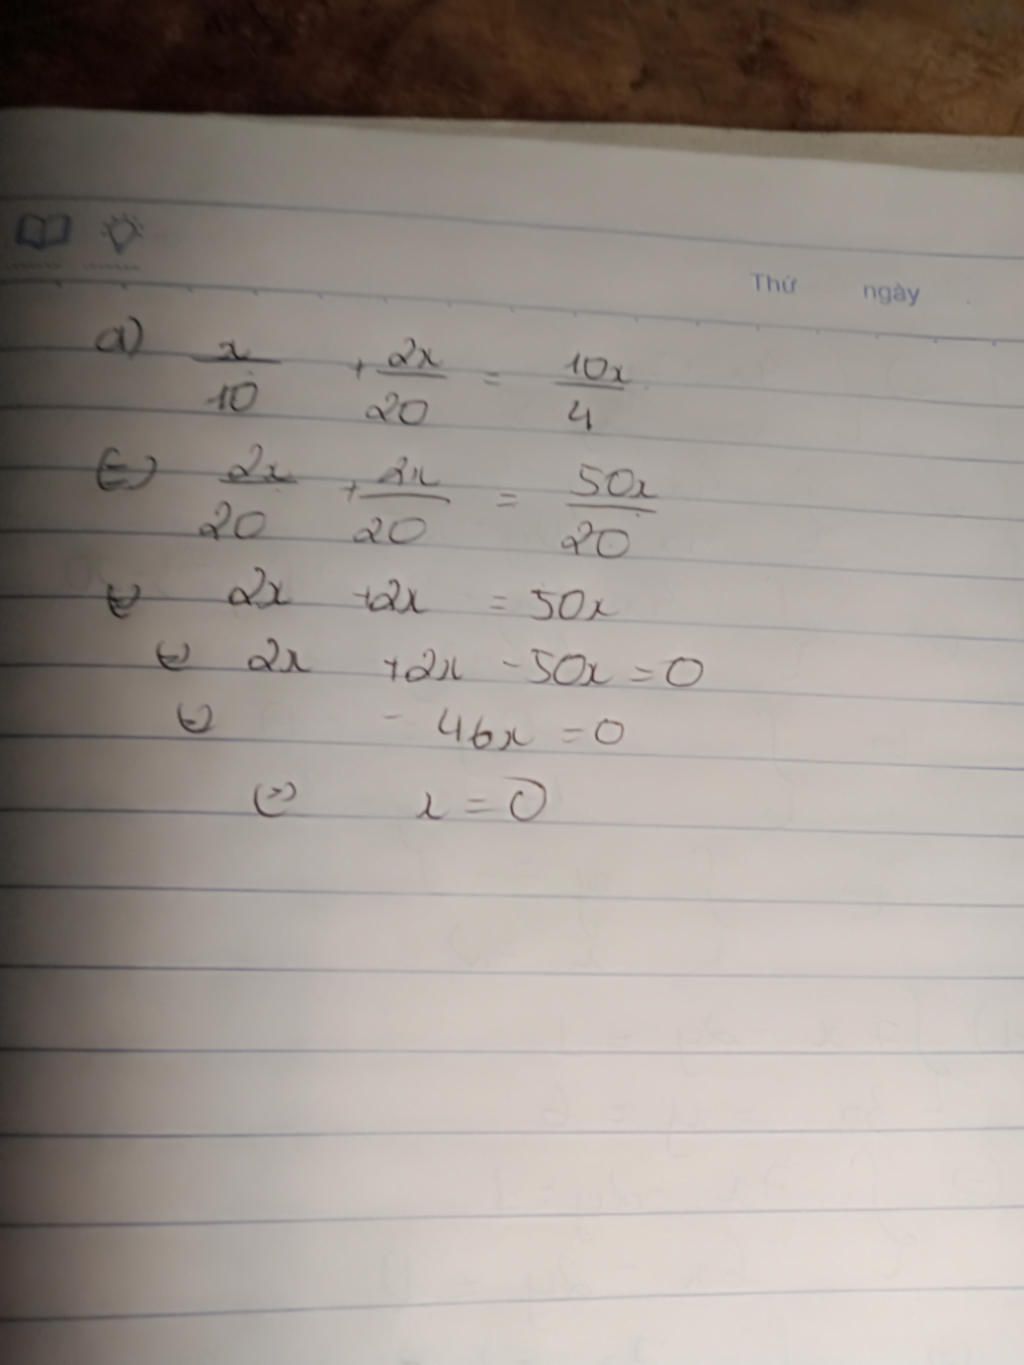 Thứ ngày
a) x/10 + 2x/20 = 10x/4
(=) 2x/20 + 2x/20 = 50x/20
(=) 2x +2x = 50x
(=) 2x +2x - 50x = 0
(=) - 46x = 0
(=) x = 0